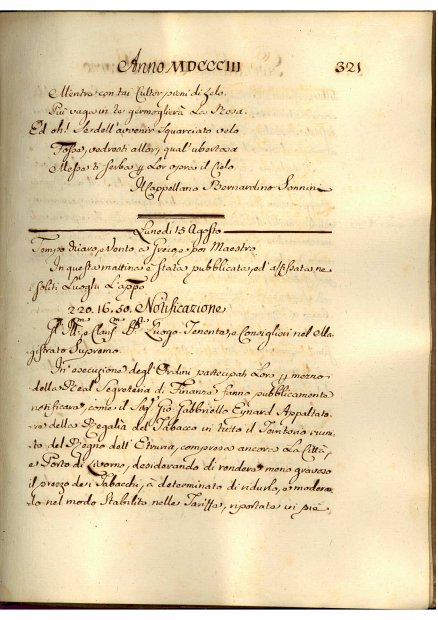 Anno MDCCCIII 321
Mentre con tai Cultor, pieni di zelo
Più vaga in te germoglierà La Rosa.
Ed oh! Se dell'avvenir squarciato velo
Fosse, vedresti allor, qual'ubertosa
Messe ti serba Lor opra il Cielo.
Il Cappellano Bernardino Sonnini
Lunedì 15 Agosto
Tempo chiaro, e Vento a Greco e poi Maestro
In questa mattina è stata pubblicata, ed affissata ne
soliti Luoghi L'app.
220.16.50. Notificazione
Gl' Ill.mi e Clariss.mi SS.ri Luogo-Tenente, e Consiglieri nel Ma-
gistrato Supremo.
In esecuzione degl'Ordini partecipati Loro mezzo
della Real Segreteria di Finanze fanno pubblicamente
notificare, come il Sig.re Gio. Gabbriello Eynard Appaltato-
re della Regalia del Tabacco in tutto il Territorio riuni-
to del Regno dell'Etruria, compresa ancora La Città,
e Porto di Livorno, desiderando di rendere meno gravoso
il prezzo dei Tabacchi, à determinato di ridurlo, e modera-
to nel modo Stabilito nelle Tariffe, riportate in piè